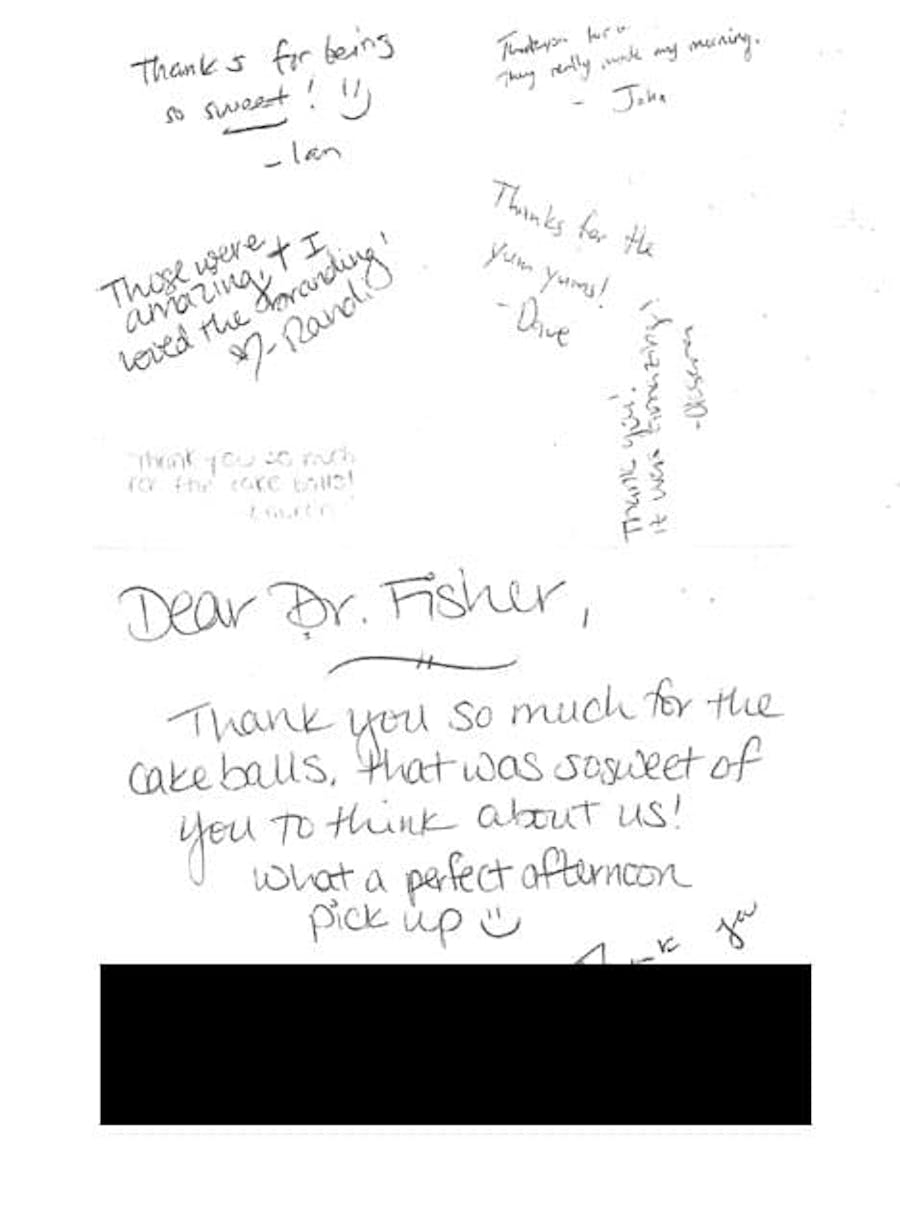 Thanks for being
so sweet! :)
- Ian
They really made my morning.
- John
Those were
amazing, + I
loved the branding!
♡- Randi
Thanks for the
yum yums!
- Dave
Thank you!
It was amazing!
Thank you so much
for the cake balls!
- Lauren
Dear Dr. Fisher,
Thank you so much for the
cake balls. That was so sweet of
you to think about us!
What a perfect afternoon
pick up :)
Thank you